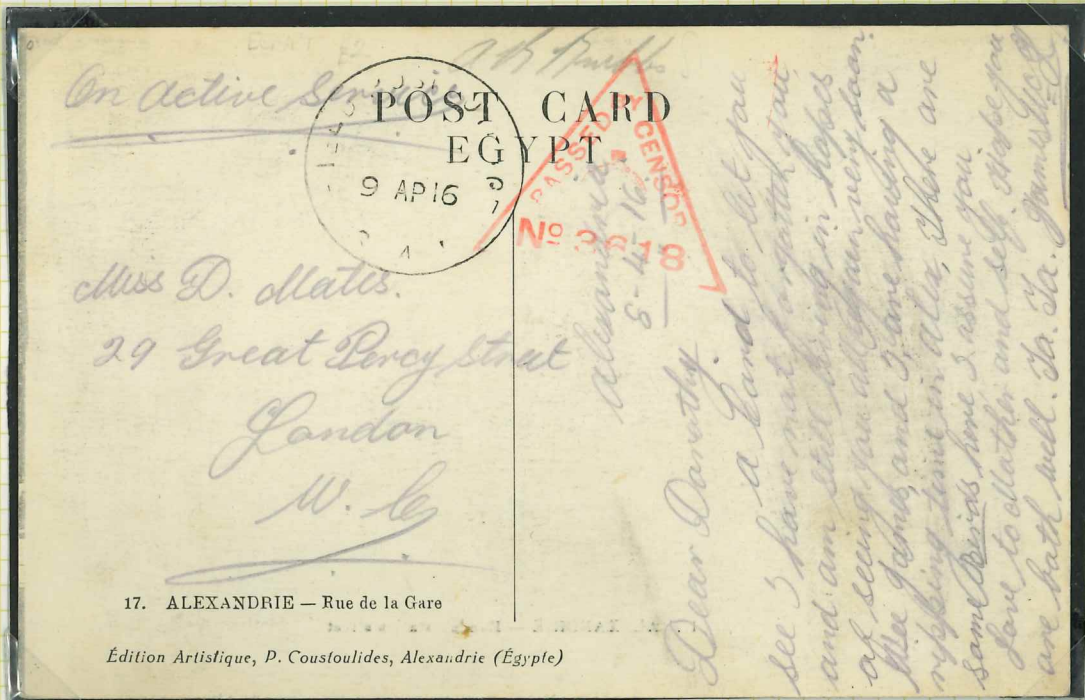 On active Service
POST CARD
EGYPT
9 AP 16
PASSED BY CENSOR
No 3618
Miss D. Mates.
29 Great Percy Street
London
W. C
17. ALEXANDRIE — Rue de la Gare
Édition Artistique, P. Coustoulides, Alexandrie (Égypte)
Alexandria
8-4-16
Dear Dorothy.
a Card to let you
see I have not forgotten you
and am still living in hopes
of seeing you all again very soon.
and I are having a
ripping time in Alex, There are
some here I assure you.
Love to Mother and self, hope you
are both well. Ta. Ta.